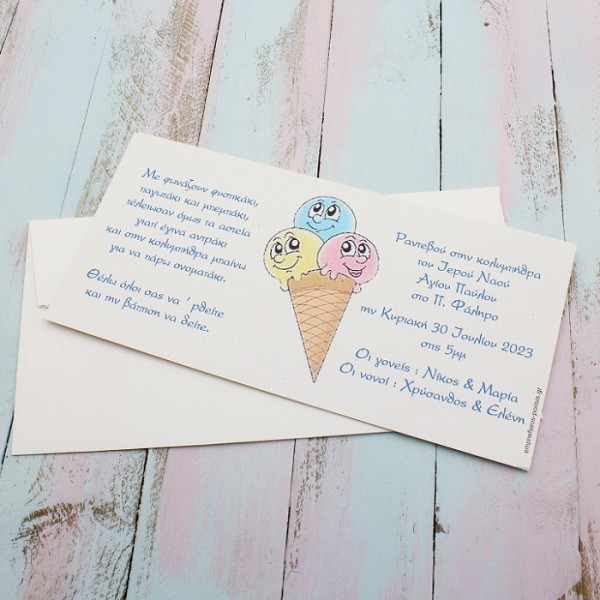 Με φωνάζουν φυστικάκι,
παγωτάκι και μπεμπάκι,
τέλειωσαν όμως τα αστεία
γιατί έγινα αντράκι
και στην κολυμπήθρα μπαίνω
για να πάρω ονοματάκι.
Θέλω όλοι σας να ' ρθείτε
και την βάπτιση να δείτε.
Ραντεβού στην κολυμπήθρα
του Ιερού Ναού
Αγίου Παύλου
στο Π. Φάληρο
την Κυριακή 30 Ιουλίου 2023
στις 5μμ
Οι γονείς : Νίκος & Μαρία
Οι νονοί : Χρύσανθος & Ελένη